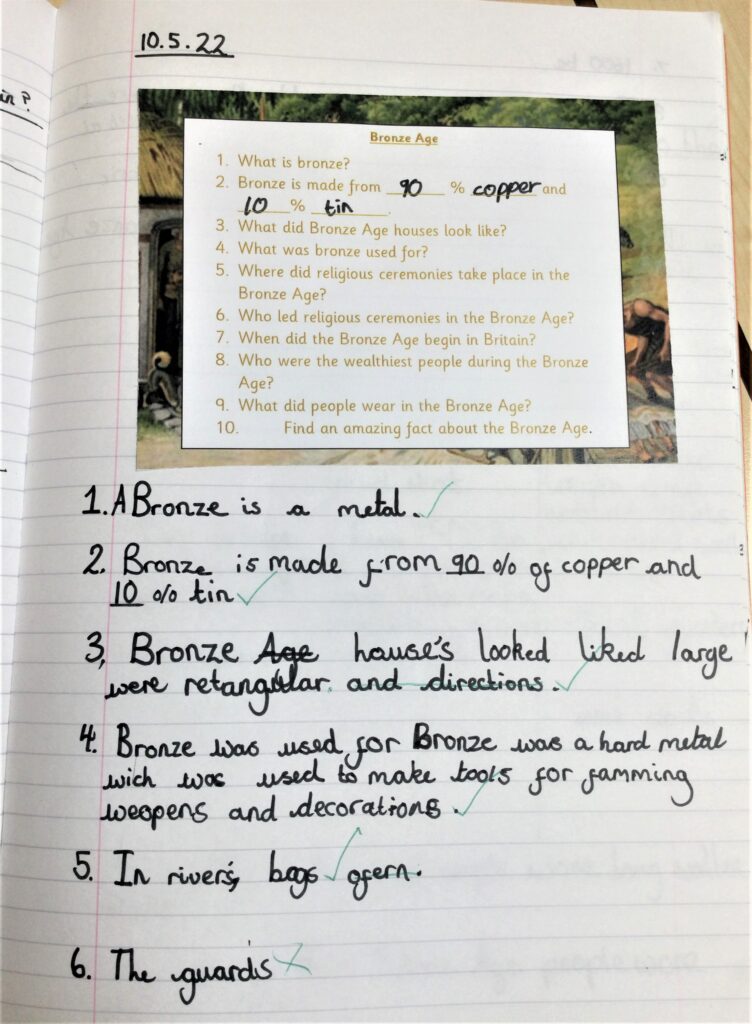 in?
10.5.22
Bronze Age
1. What is bronze?
2. Bronze is made from 90 % copper and
10 % tin.
3. What did Bronze Age houses look like?
4. What was bronze used for?
5. Where did religious ceremonies take place in the
Bronze Age?
6. Who led religious ceremonies in the Bronze Age?
7. When did the Bronze Age begin in Britain?
8. Who were the wealthiest people during the Bronze
Age?
9. What did people wear in the Bronze Age?
10. Find an amazing fact about the Bronze Age.
1. A Bronze is a metal.
2. Bronze is made from 90 % of copper and
10 % tin
3, Bronze Age house's looked liked large
were retangular and directions.
4. Bronze was used for Bronze was a hard metal
wich was used to make tools for famming
weopens and decorations.
5. In rivers, bogs ofern.
6. The guardis